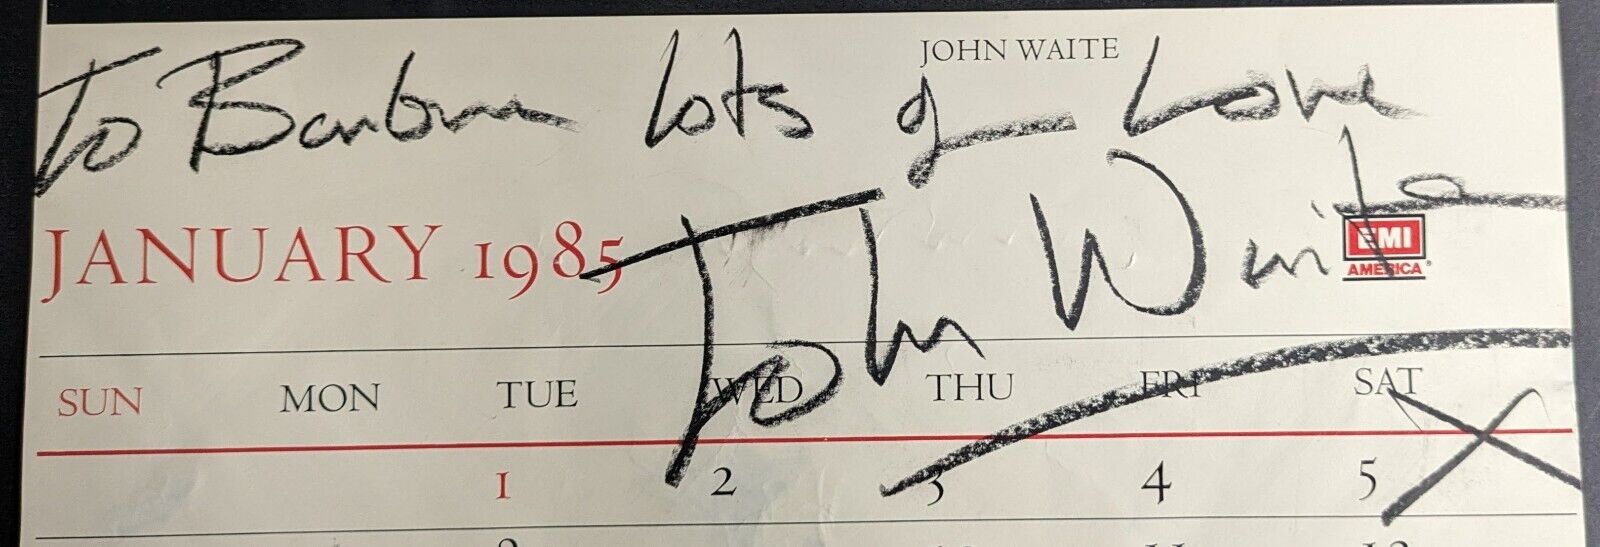 JOHN WAITE
To Barbara lots of Love
John Waite
JANUARY 1985
EMI
AMERICA
SUN MON TUE WED THU FRI SAT
1 2 3 4 5
X